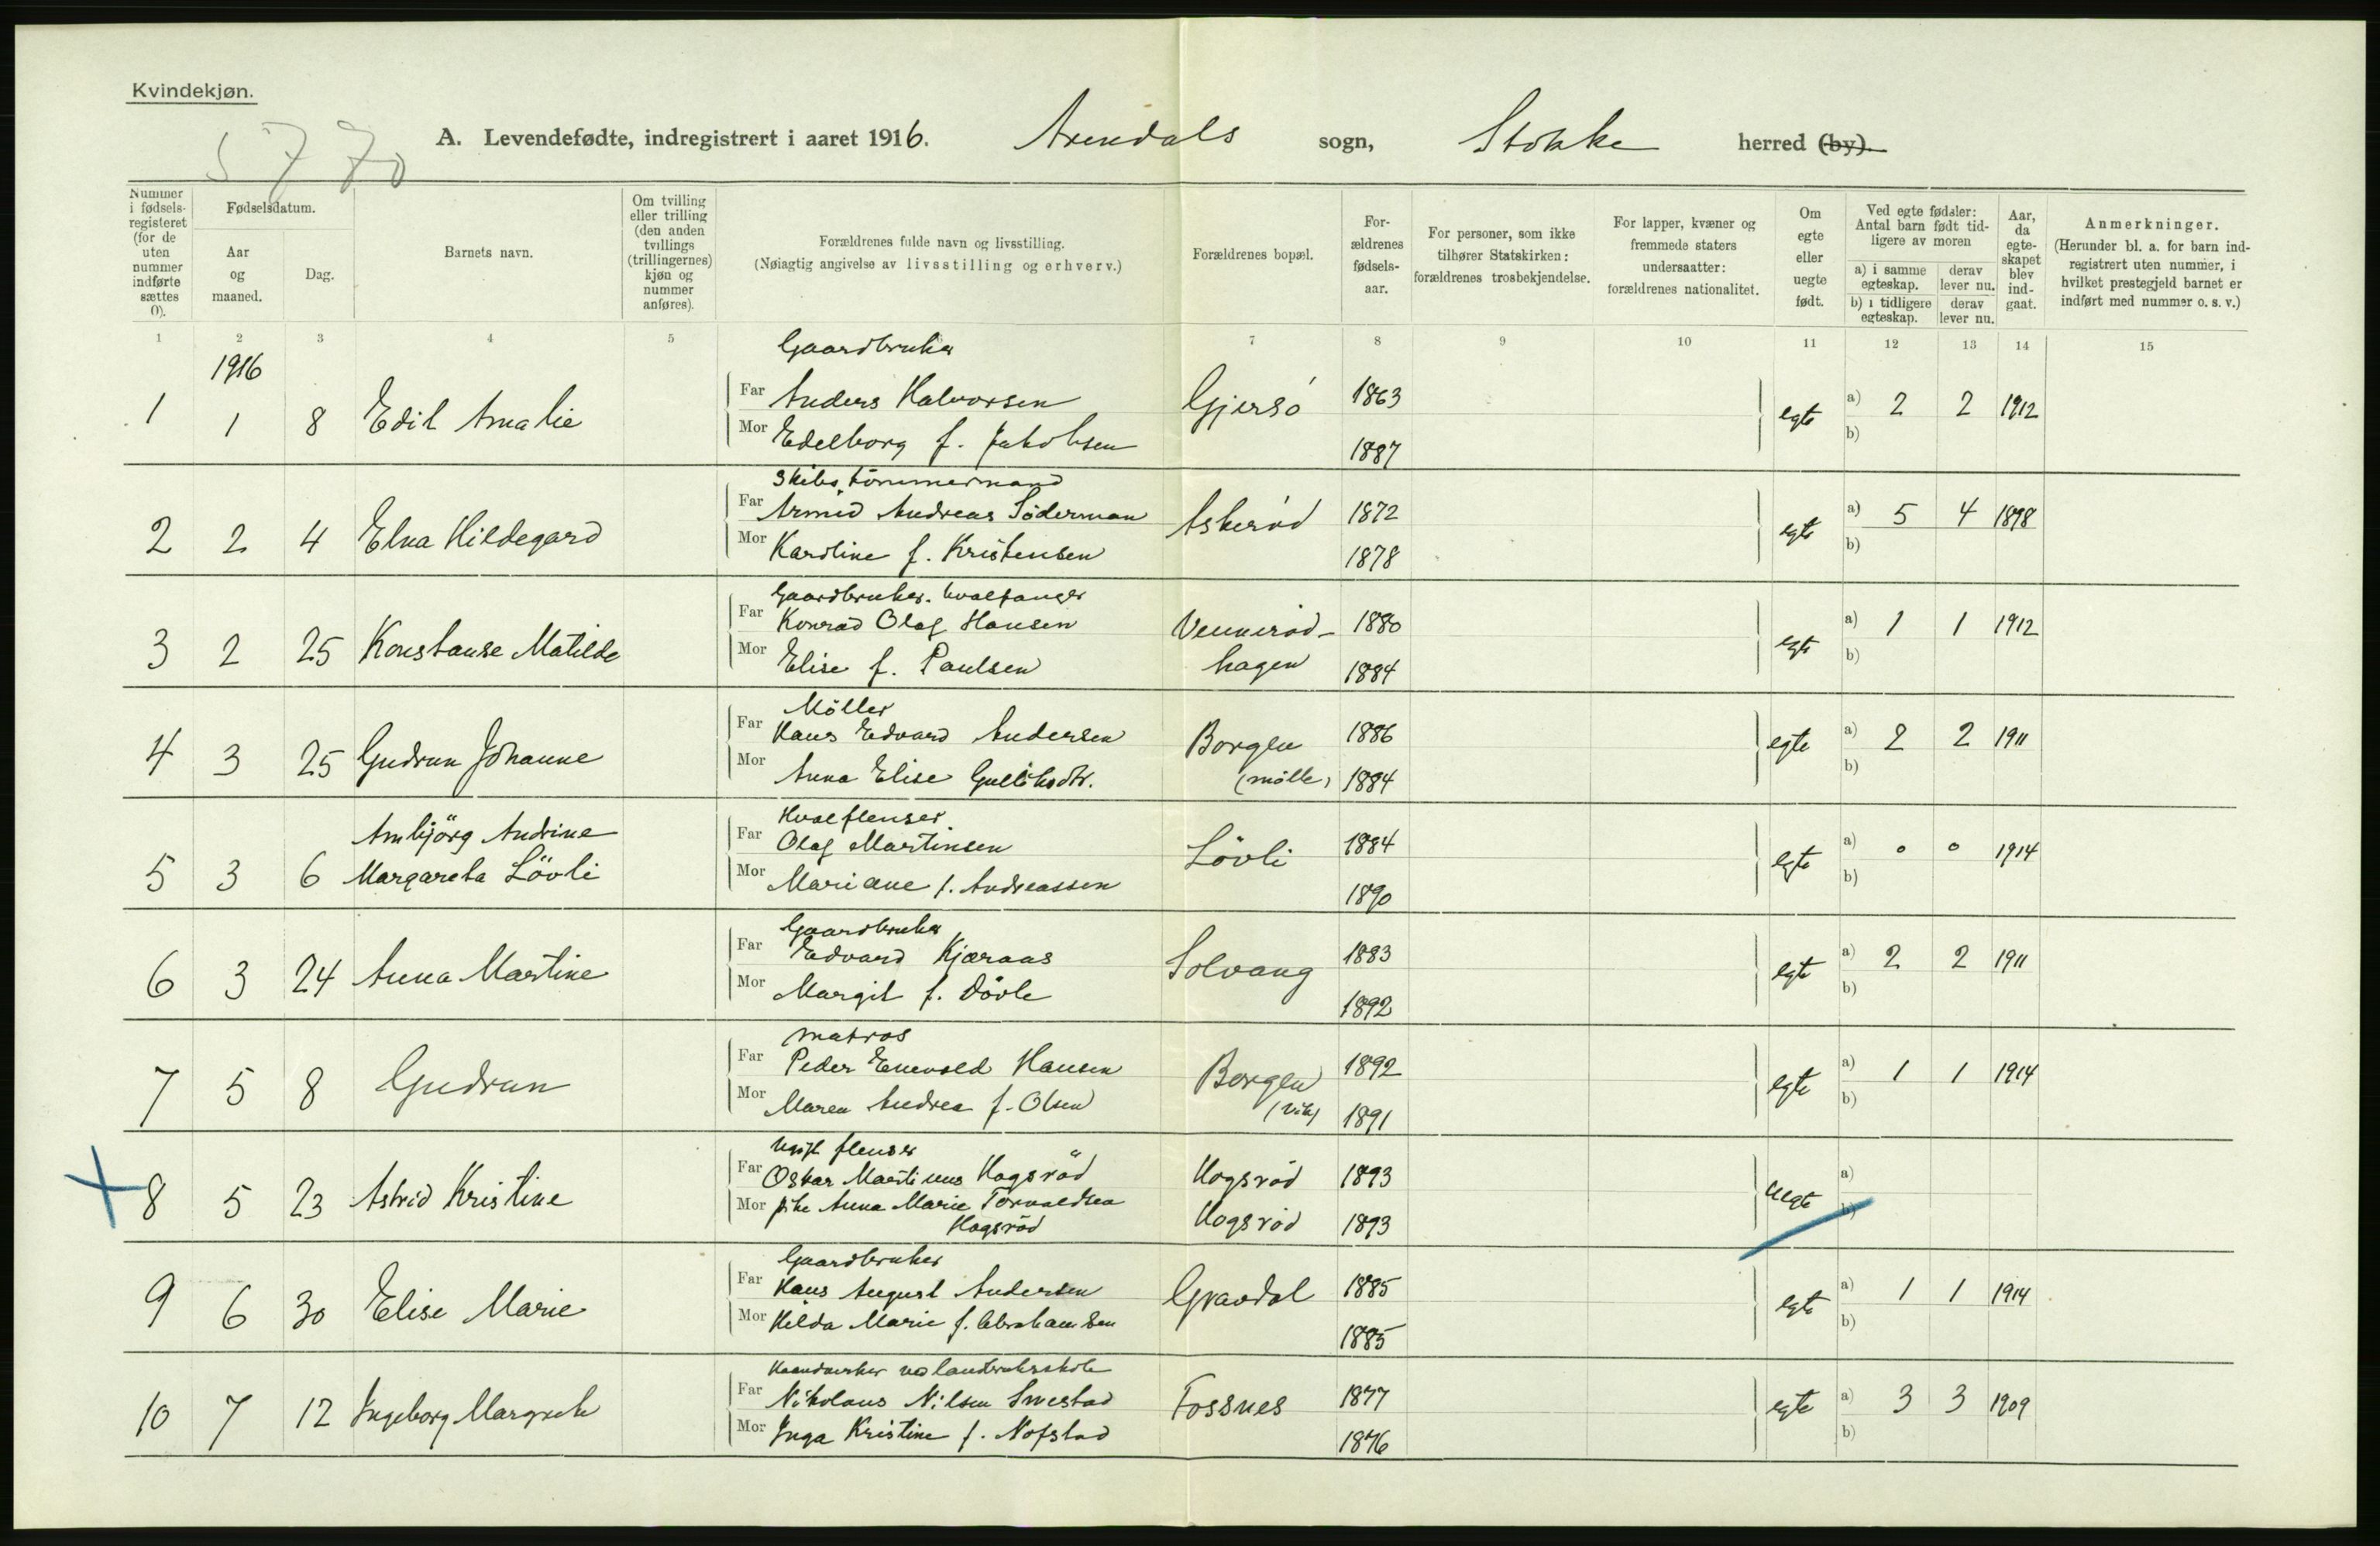 Kvindekjøn.
5770
A. Levendefødte, indregistrert i aaret 1916. Arendals sogn, Stokke herred (by).
Nummer i fødselsregisteret (for de uten nummer indførte sættes 0).
Fødselsdatum.
Aar og maaned.
Dag.
Barnets navn.
Om tvilling eller trilling (den anden tvillings (trillingernes) kjøn og nummer anføres).
Forældrenes fulde navn og livsstilling.
(Nøiagtig angivelse av livsstilling og erhverv.)
Forældrenes bopæl.
Forældrenes fødselsaar.
For personer, som ikke tilhører Statskirken: forældrenes trosbekjendelse.
For lapper, kvæner og fremmede staters undersaatter: forældrenes nationalitet.
Om egte eller uegte født.
Ved egte fødsler: Antal barn født tidligere av moren
a) i samme egteskap.
derav lever nu.
b) i tidligere egteskap.
derav lever nu.
Aar, da egteskapet blev indgaat.
Anmerkninger.
(Herunder bl. a. for barn indregistrert uten nummer, i hvilket prestegjeld barnet er indført med nummer o. s. v.)
1 2 3 4 5 7 8 9 10 11 12 13 14 15
1916
Gaardbruker
1 1 8 Edit Amalie Far Anders Halvorsen Gjersø 1863 egte a) 2 2 1912
Mor Edelborg f. Jakobsen 1887 b)
Skibstömmermand
2 2 4 Elna Hildegard Far Armid Andreas Söderman Askerød 1872 egte a) 5 4 1898
Mor Karoline f. Kristensen 1878 b)
Gaardbruker. hvalfanger
3 2 25 Konstanse Matilde Far Konrad Olaf Hansen Vennerød- 1880 egte a) 1 1 1912
Mor Elise f. Paulsen hagen 1884 b)
Möller
4 3 25 Gudrun Johanne Far Hans Edvard Andersen Borgen 1886 egte a) 2 2 1911
Mor Anna Elise Gulliksdtr. (mölle) 1884 b)
Hvalflenser
Arnbjörg Andrine Far Olaf Martinsen Lövli 1884 egte a) 0 0 1914
5 3 6 Margareta Lövli Mor Mariane f. Andreassen 1890 b)
Gaardbruker
6 3 24 Anna Martine Far Edvard Kjæraas Solvang 1883 egte a) 2 2 1911
Mor Margit f. Dövle 1892 b)
matros
7 5 8 Gudrun Far Peder Enevold Hansen Borgen 1892 egte a) 1 1 1914
Mor Maren Andrea f. Olsen (Vik) 1891 b)
ugift flenser
8 5 23 Astrid Kristine Far Oskar Martinus Hogsröd Hogsröd 1893 uegte a)
Mor pike Anna Marie Torvaldsen Hogsröd 1893 b)
Hogsröd
Gaardbruker
9 6 30 Elise Marie Far Hans August Andersen Gravdal 1885 egte a) 1 1 1914
Mor Hilda Marie f. Abrahamsen 1885 b)
Haandverker ved landbruksskole
10 7 12 Ingeborg Margrete Far Nikolaus Nilsen Fossnes 1877 egte a) 3 3 1909
Mor Inga Kristine f. Nofstad 1876 b)